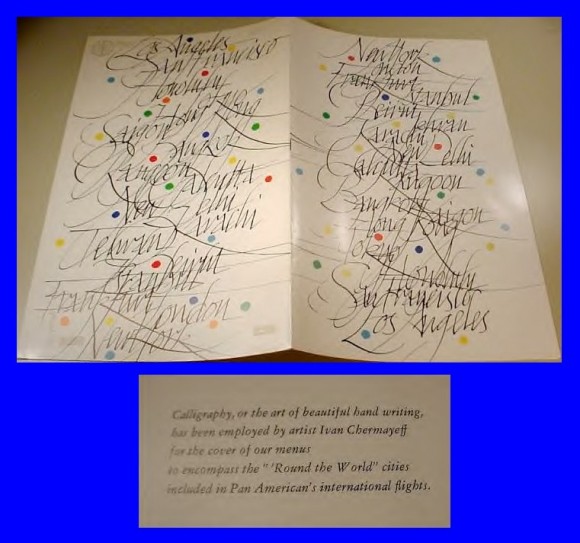 Los Angeles
San Francisco
Honolulu
Tokyo
Saigon Hong Kong
Bangkok
Rangoon
Calcutta
New Delhi
Tehran Karachi
Istanbul Beirut
Frankfurt
London
New York
New York
London
Frankfurt
Istanbul
Beirut
Tehran
Karachi
New Delhi
Calcutta
Rangoon
Bangkok Saigon
Hong Kong
Tokyo
Honolulu
San Francisco
Los Angeles
Calligraphy, or the art of beautiful hand writing,
has been employed by artist Ivan Chermayeff
for the cover of our menus
to encompass the " 'Round the World" cities
included in Pan American's international flights.